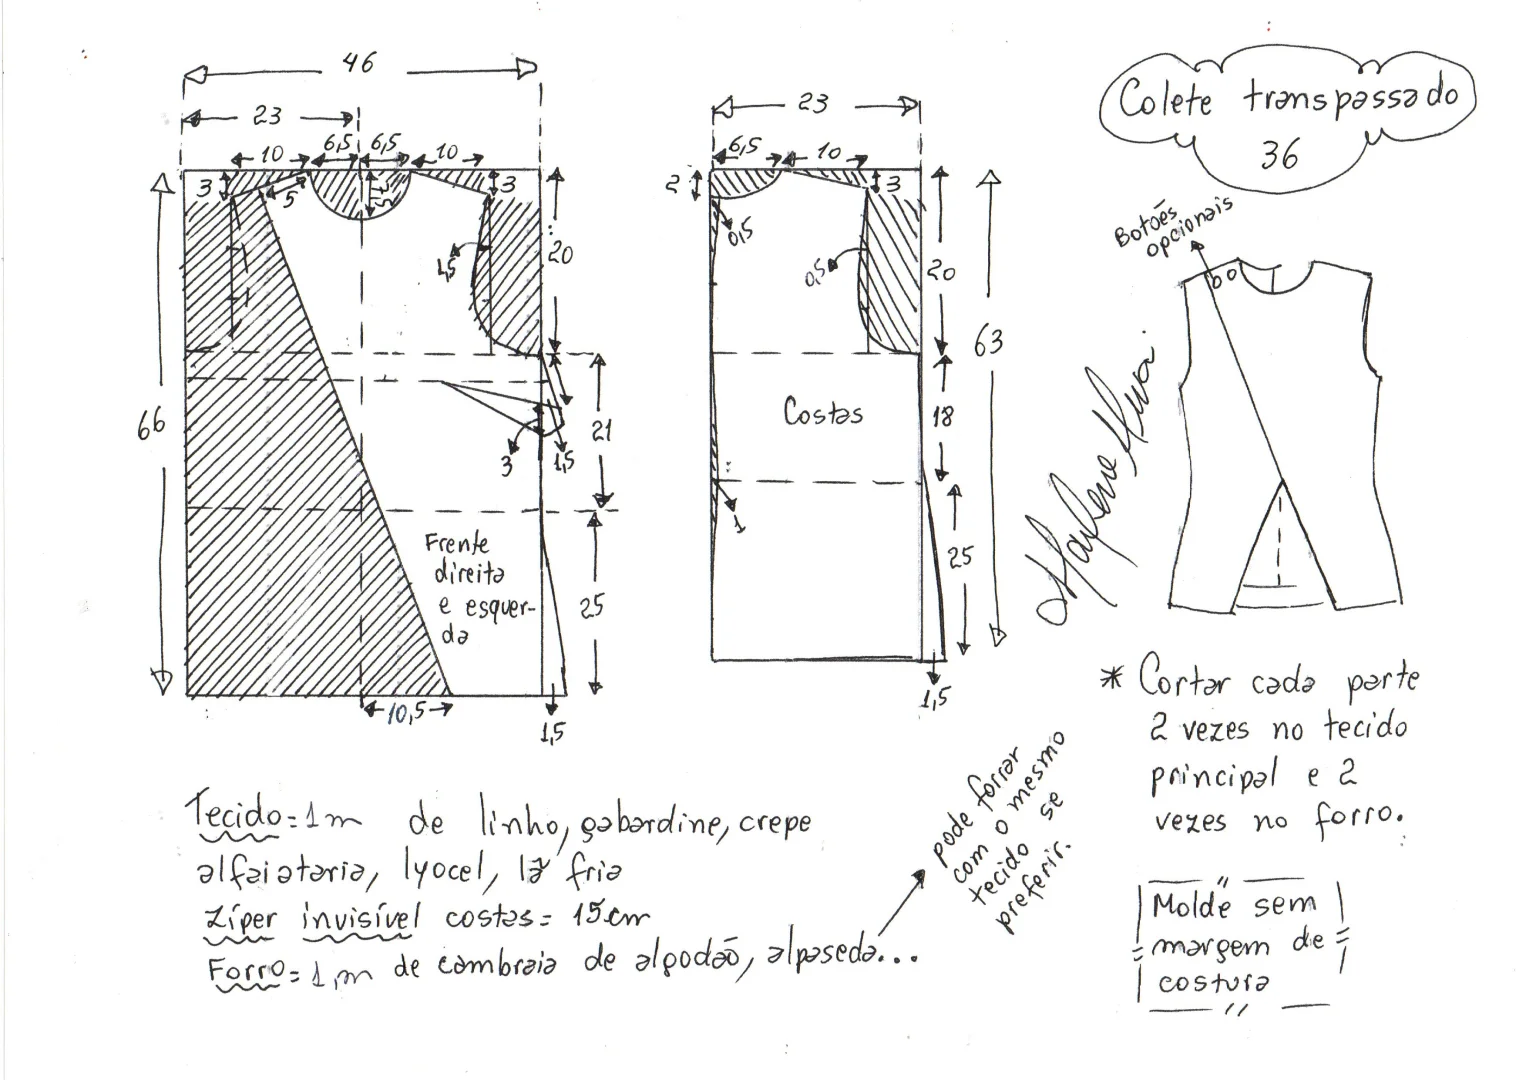 Colete transpassado
36
46
23
10
6,5
6,5
10
3
5
3
1,5
20
66
21
3
1,5
Frente
direita
e esquer-
da
25
10,5
1,5
23
6,5
10
2
3
0,5
0,5
20
63
Costas
18
1
25
1,5
Botões
opcionais
* Cortar cada parte
2 vezes no tecido
principal e 2
vezes no forro.
Molde sem
margem de
costura
Tecido = 1m de linho, gabardine, crepe
alfaiataria, lyocel, lã fria
Zíper invisível costas = 15cm
Forro = 1m de cambraia de algodão, alpaseda...
pode forrar
com o mesmo
tecido se
preferir.